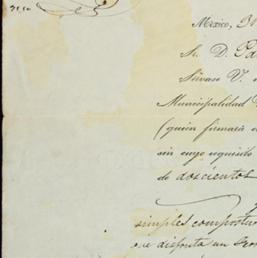 Mexico, 30
Sr. D. Pa
Sírvase V.
Municipalidad
(quien firmará
sin cuyo requisito
de doscientos
simples compostu
que disfruta un